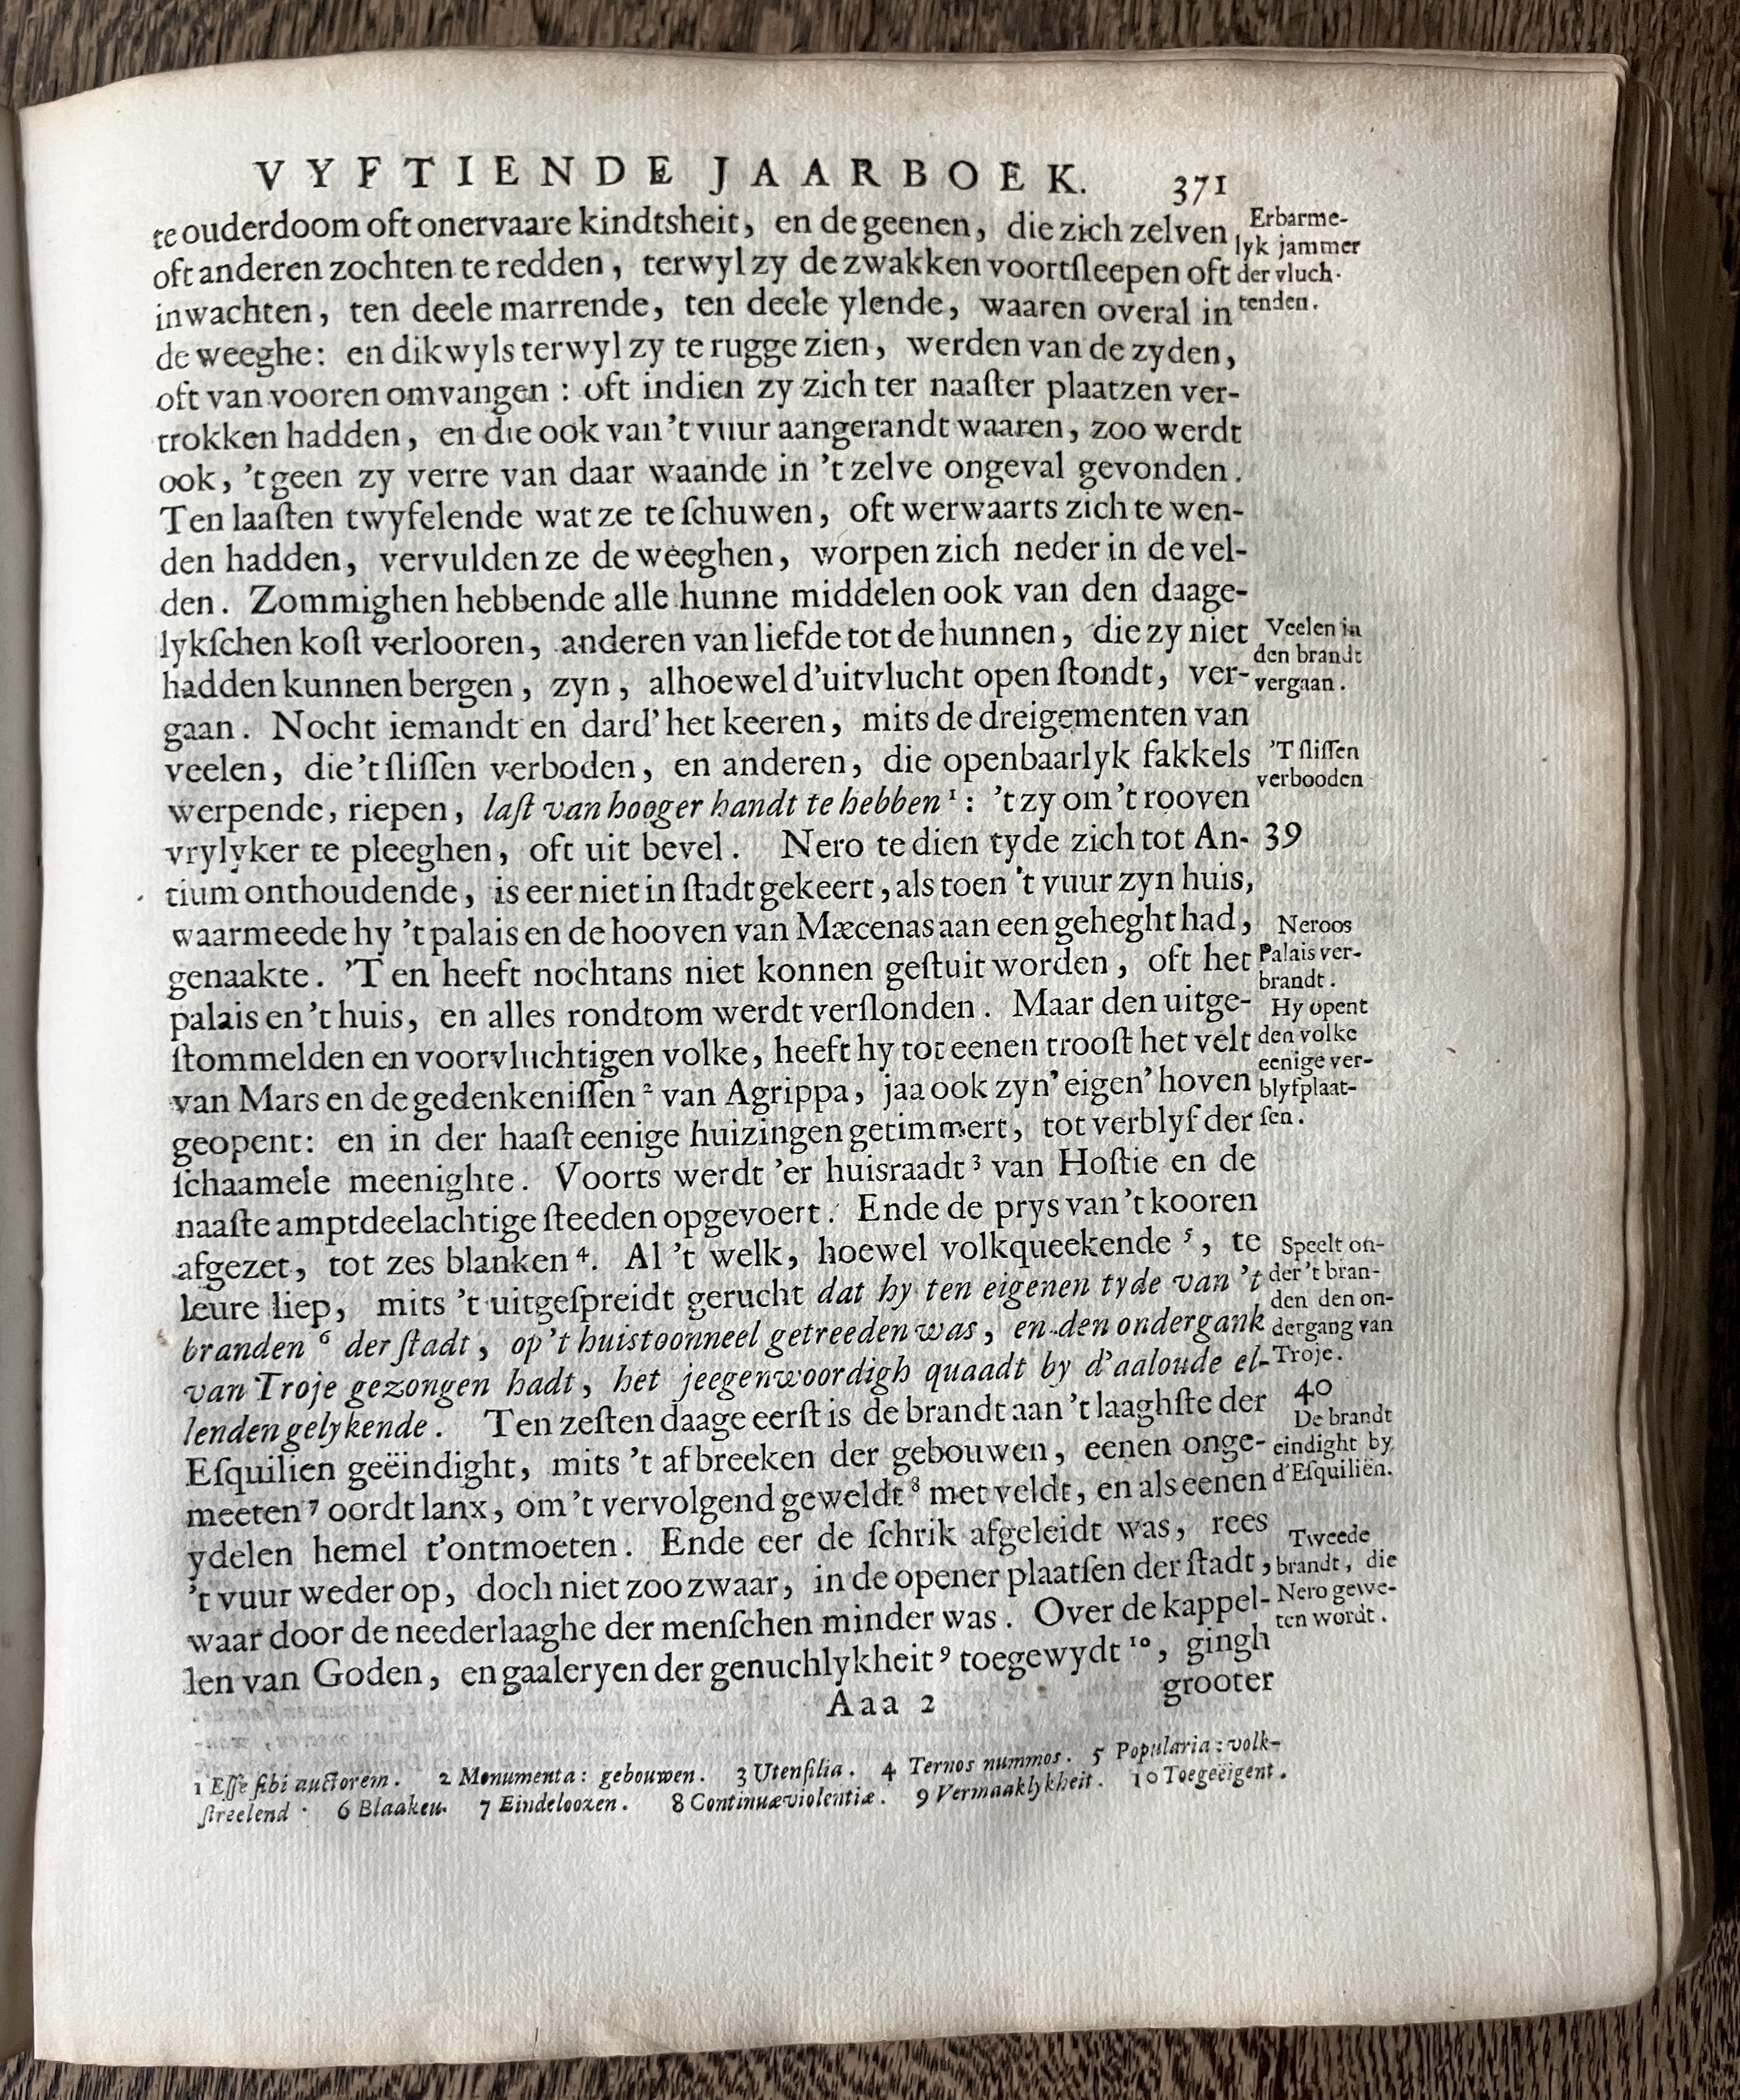 VYFTIENDE JAARBOEK. 371
te ouderdoom oft onervaare kindtsheit, en de geenen, die zich zelven
oft anderen zochten te redden, terwyl zy de zwakken voortſleepen oft
inwachten, ten deele marrende, ten deele ylende, waaren overal in
de weeghe: en dikwyls terwyl zy te rugge zien, werden van de zyden,
oft van vooren omvangen: oft indien zy zich ter naaſter plaatzen ver-
trokken hadden, en die ook van 't vuur aangerandt waaren, zoo werdt
ook, 't geen zy verre van daar waande in 't zelve ongeval gevonden.
Ten laaſten twyfelende wat ze te ſchuwen, oft werwaarts zich te wen-
den hadden, vervulden ze de weeghen, worpen zich neder in de vel-
den. Zommighen hebbende alle hunne middelen ook van den daage-
lykſchen koſt verlooren, anderen van liefde tot de hunnen, die zy niet
hadden kunnen bergen, zyn, alhoewel d'uitvlucht open ſtondt, ver-
gaan. Nocht iemandt en dard' het keeren, mits de dreigementen van
veelen, die 't ſliſſen verboden, en anderen, die openbaarlyk fakkels
werpende, riepen, laſt van hooger handt te hebben¹: 't zy om 't rooven
vrylyker te pleeghen, oft uit bevel. Nero te dien tyde zich tot An-
tium onthoudende, is eer niet in ſtadt gekeert, als toen 't vuur zyn huis,
waarmeede hy 't palais en de hooven van Mæcenas aan een geheght had,
genaakte. 'T en heeft nochtans niet konnen geſtuit worden, oft het
palais en 't huis, en alles rondtom werdt verſlonden. Maar den uitge-
ſtommelden en voorvluchtigen volke, heeft hy tot eenen trooſt het velt
van Mars en de gedenkeniſſen² van Agrippa, jaa ook zyn' eigen' hoven
geopent: en in der haaſt eenige huizingen getimmert, tot verblyf der
ſchaamele meenighte. Voorts werdt 'er huisraadt³ van Hoſtie en de
naaſte amptdeelachtige ſteeden opgevoert. Ende de prys van 't kooren
afgezet, tot zes blanken⁴. Al 't welk, hoewel volkqueekende⁵, te
leure liep, mits 't uitgeſpreidt gerucht dat hy ten eigenen tyde van 't
branden⁶ der ſtadt, op 't huistoonneel getreeden was, en den ondergank
van Troje gezongen hadt, het jeegenwoordigh quaadt by d'aaloude el-
lenden gelykende. Ten zeſten daage eerſt is de brandt aan 't laaghſte der
Eſquilien geëindight, mits 't afbreeken der gebouwen, eenen onge-
meeten⁷ oordt lanx, om 't vervolgend geweldt⁸ met veldt, en als eenen
ydelen hemel t'ontmoeten. Ende eer de ſchrik afgeleidt was, rees
't vuur weder op, doch niet zoo zwaar, in de opener plaatſen der ſtadt,
waar door de neederlaaghe der menſchen minder was. Over de kappel-
len van Goden, en gaaleryen der genuchlykheit⁹ toegewydt¹⁰, gingh
Aaa 2 grooter
Erbarme-
lyk jammer
der vluch-
tenden.
Veelen in
den brandt
vergaan.
'T ſliſſen
verbooden
39
Neroos
Palais ver-
brandt.
Hy opent
den volke
eenige ver-
blyfplaat-
ſen.
Speelt on-
der 't bran-
den den on-
dergang van
Troje.
40
De brandt
eindight by
d'Eſquiliën.
Tweede
brandt, die
Nero gewe-
ten wordt.
1 Eſſe ſibi auctorem. 2 Monumenta: gebouwen. 3 Utenſilia. 4 Ternos nummos. 5 Popularia: volk-
ſtreelend. 6 Blaaken. 7 Eindeloozen. 8 Continuæ violentiæ. 9 Vermaaklykheit. 10 Toegeëigent.